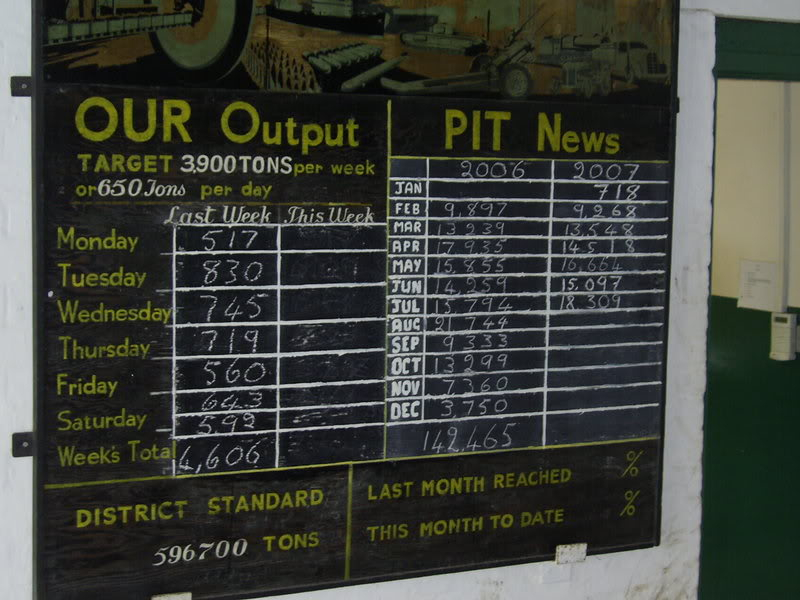 OUR Output
TARGET 3,900 TONS per week
or 650 Tons per day
Last Week This Week
Monday 517
Tuesday 830
Wednesday 745
Thursday 719
Friday 560
643
Saturday 592
Week's Total 4,606
PIT News
2006 2007
JAN 718
FEB 9,897 9,268
MAR 13,239 13,548
APR 17,935 14,518
MAY 15,855 16,664
JUN 14,259 15,097
JUL 15,794 18,309
AUG 21,744
SEP 9,333
OCT 13,299
NOV 7,360
DEC 3,750
142,465
DISTRICT STANDARD
596700 TONS
LAST MONTH REACHED %
THIS MONTH TO DATE %